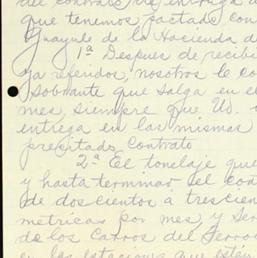 del contrato de entrega d
que tenemos pactado con
Guayule de la Hacienda d
1ª Despues de recibi
ya referidos, nosotros le co
sobrante que salga en el
mes, siempre que Ud.
entrega en las mismas
precitado contrato
2ª El tonelaje que
y hasta terminar el con
de doscientos a trescien
metricas por mes y ser
de los Carros del Ferro
en las estaciones que están